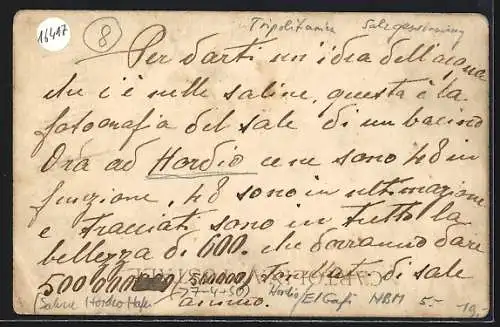 16417
8
Tripolitanien Salzgewinnung
Per darti un'idea dell'acqua
che c'è nelle saline, questa è la
fotografia del sale di un bacino
Ora ad Hordio ce ne sono 48 in
funzione, 48 sono in ultimazione
e tracciati sono in tutto la
bellezza di 600. che dovranno dare
500 000 500.000 tonellate di sale
(27-4-30) annuo.
Hordio/El Gafi NBM 5.- 19.-
(Saline Hordio Hafun